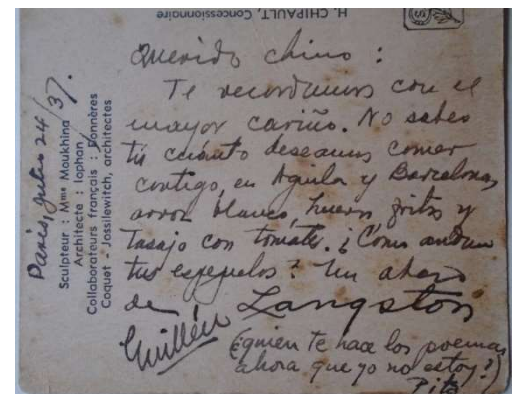 H. CHIPAULT, Concessionnaire
Paris, Julio 24/37.
Sculpteur : Mme Moukhina
Architecte : Iophan
Collaborateurs français : Bonnères
Coquet - Jossilewitch, architectes
Querido Chino :
Te recordamos con el
mayor cariño. No sabes
tú cuánto deseamos comer
contigo, en Aguila y Barcelona,
arroz blanco, huevos fritos y
tasajo con tomate. ¿Como andan
tus espejuelos? Un abrazo
de Langston
Guillén
(¿quien te hace los poemas
ahora que yo no estoy?)
Pita